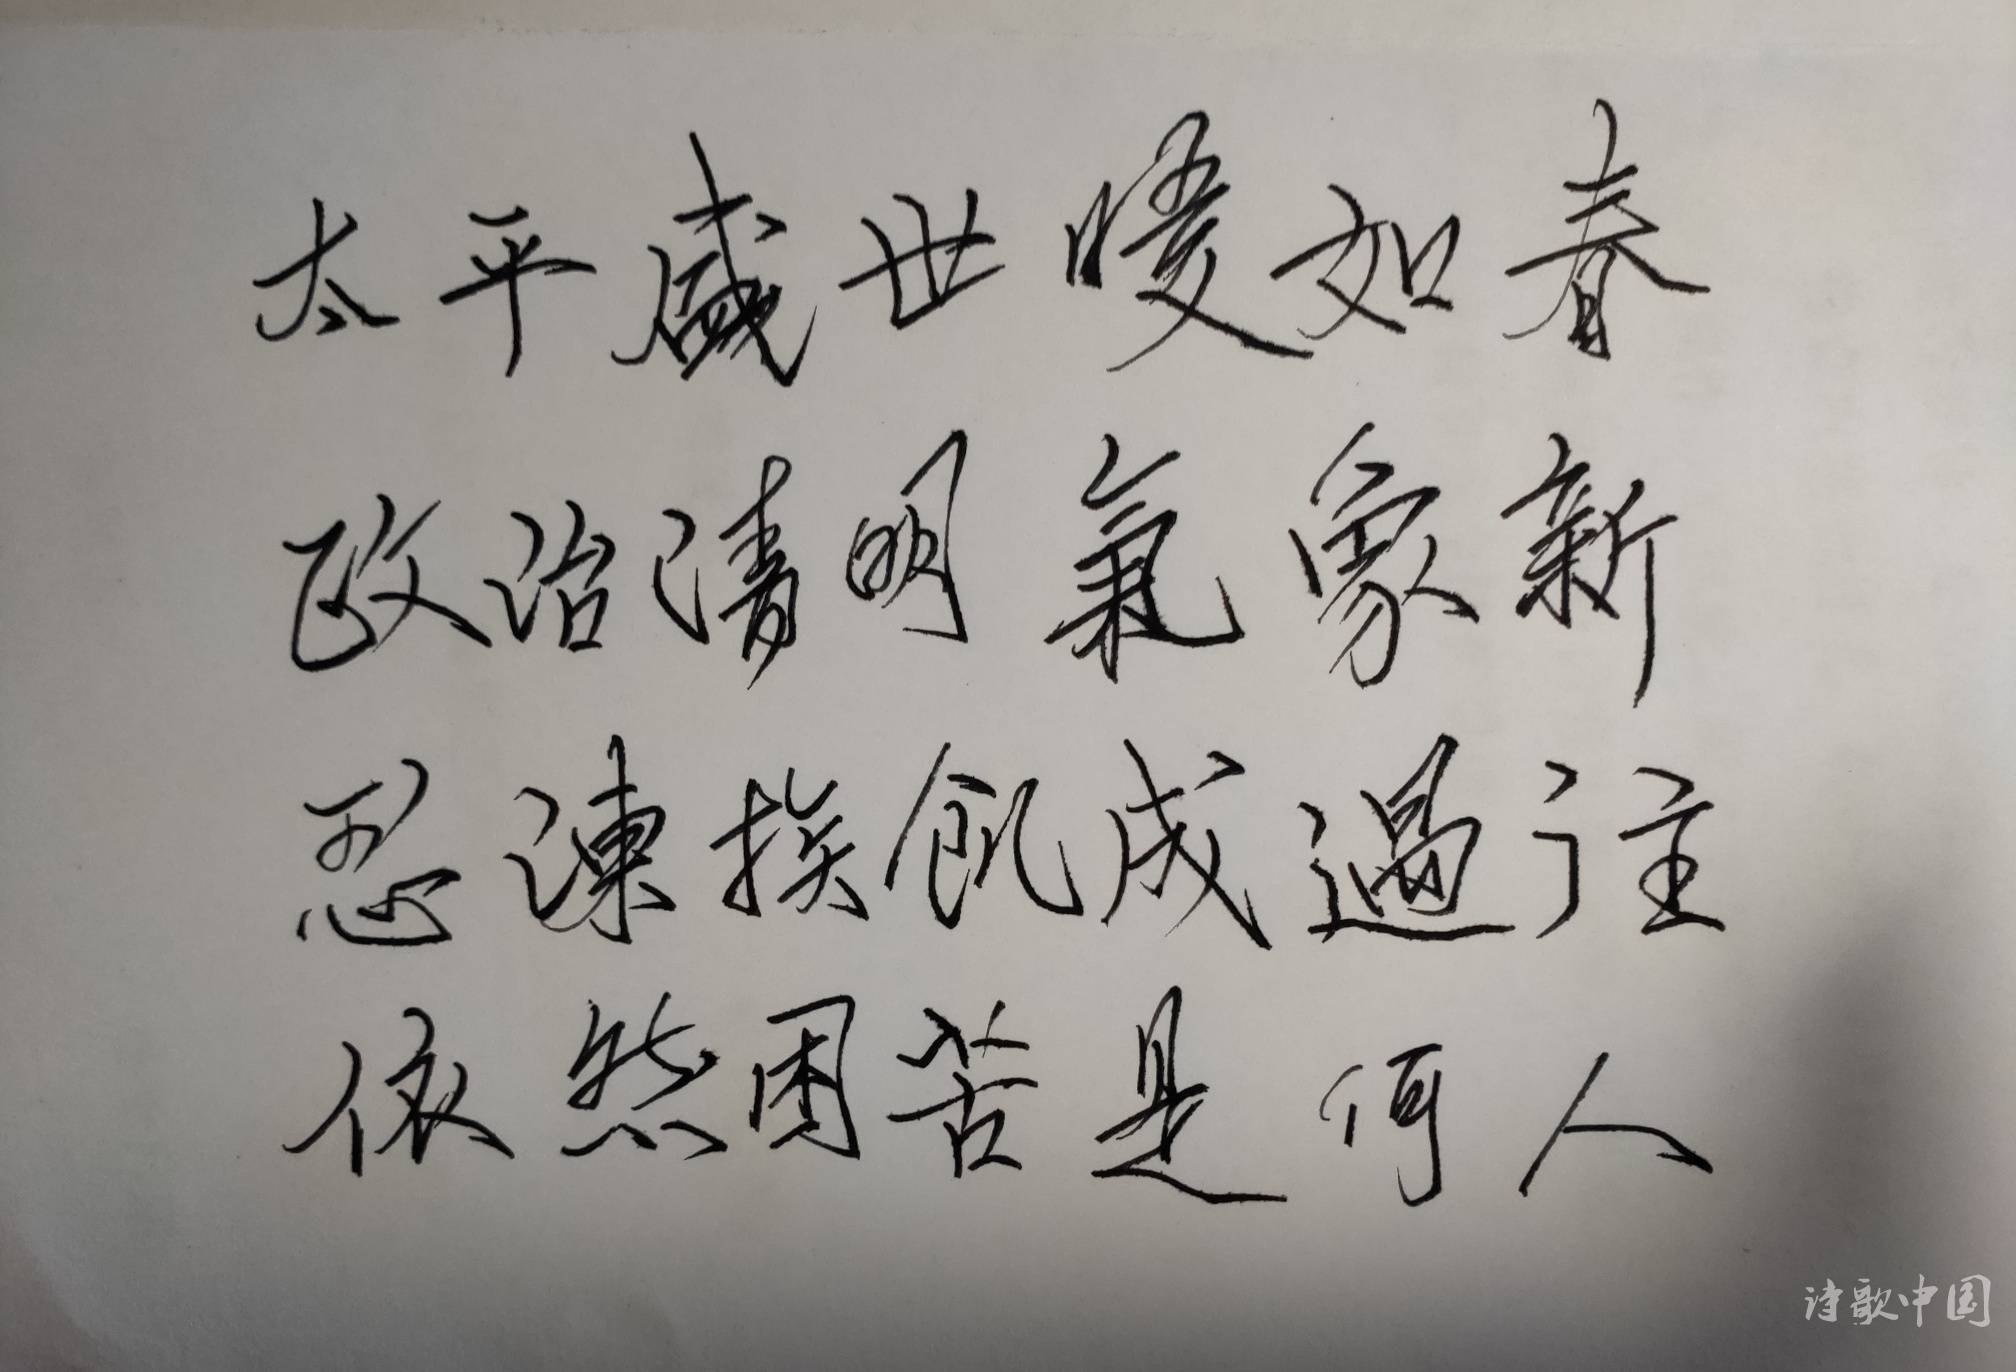 太平盛世暖如春
政治清明氣象新
忍凍挨飢成過往
依然困苦是何人
诗歌中国